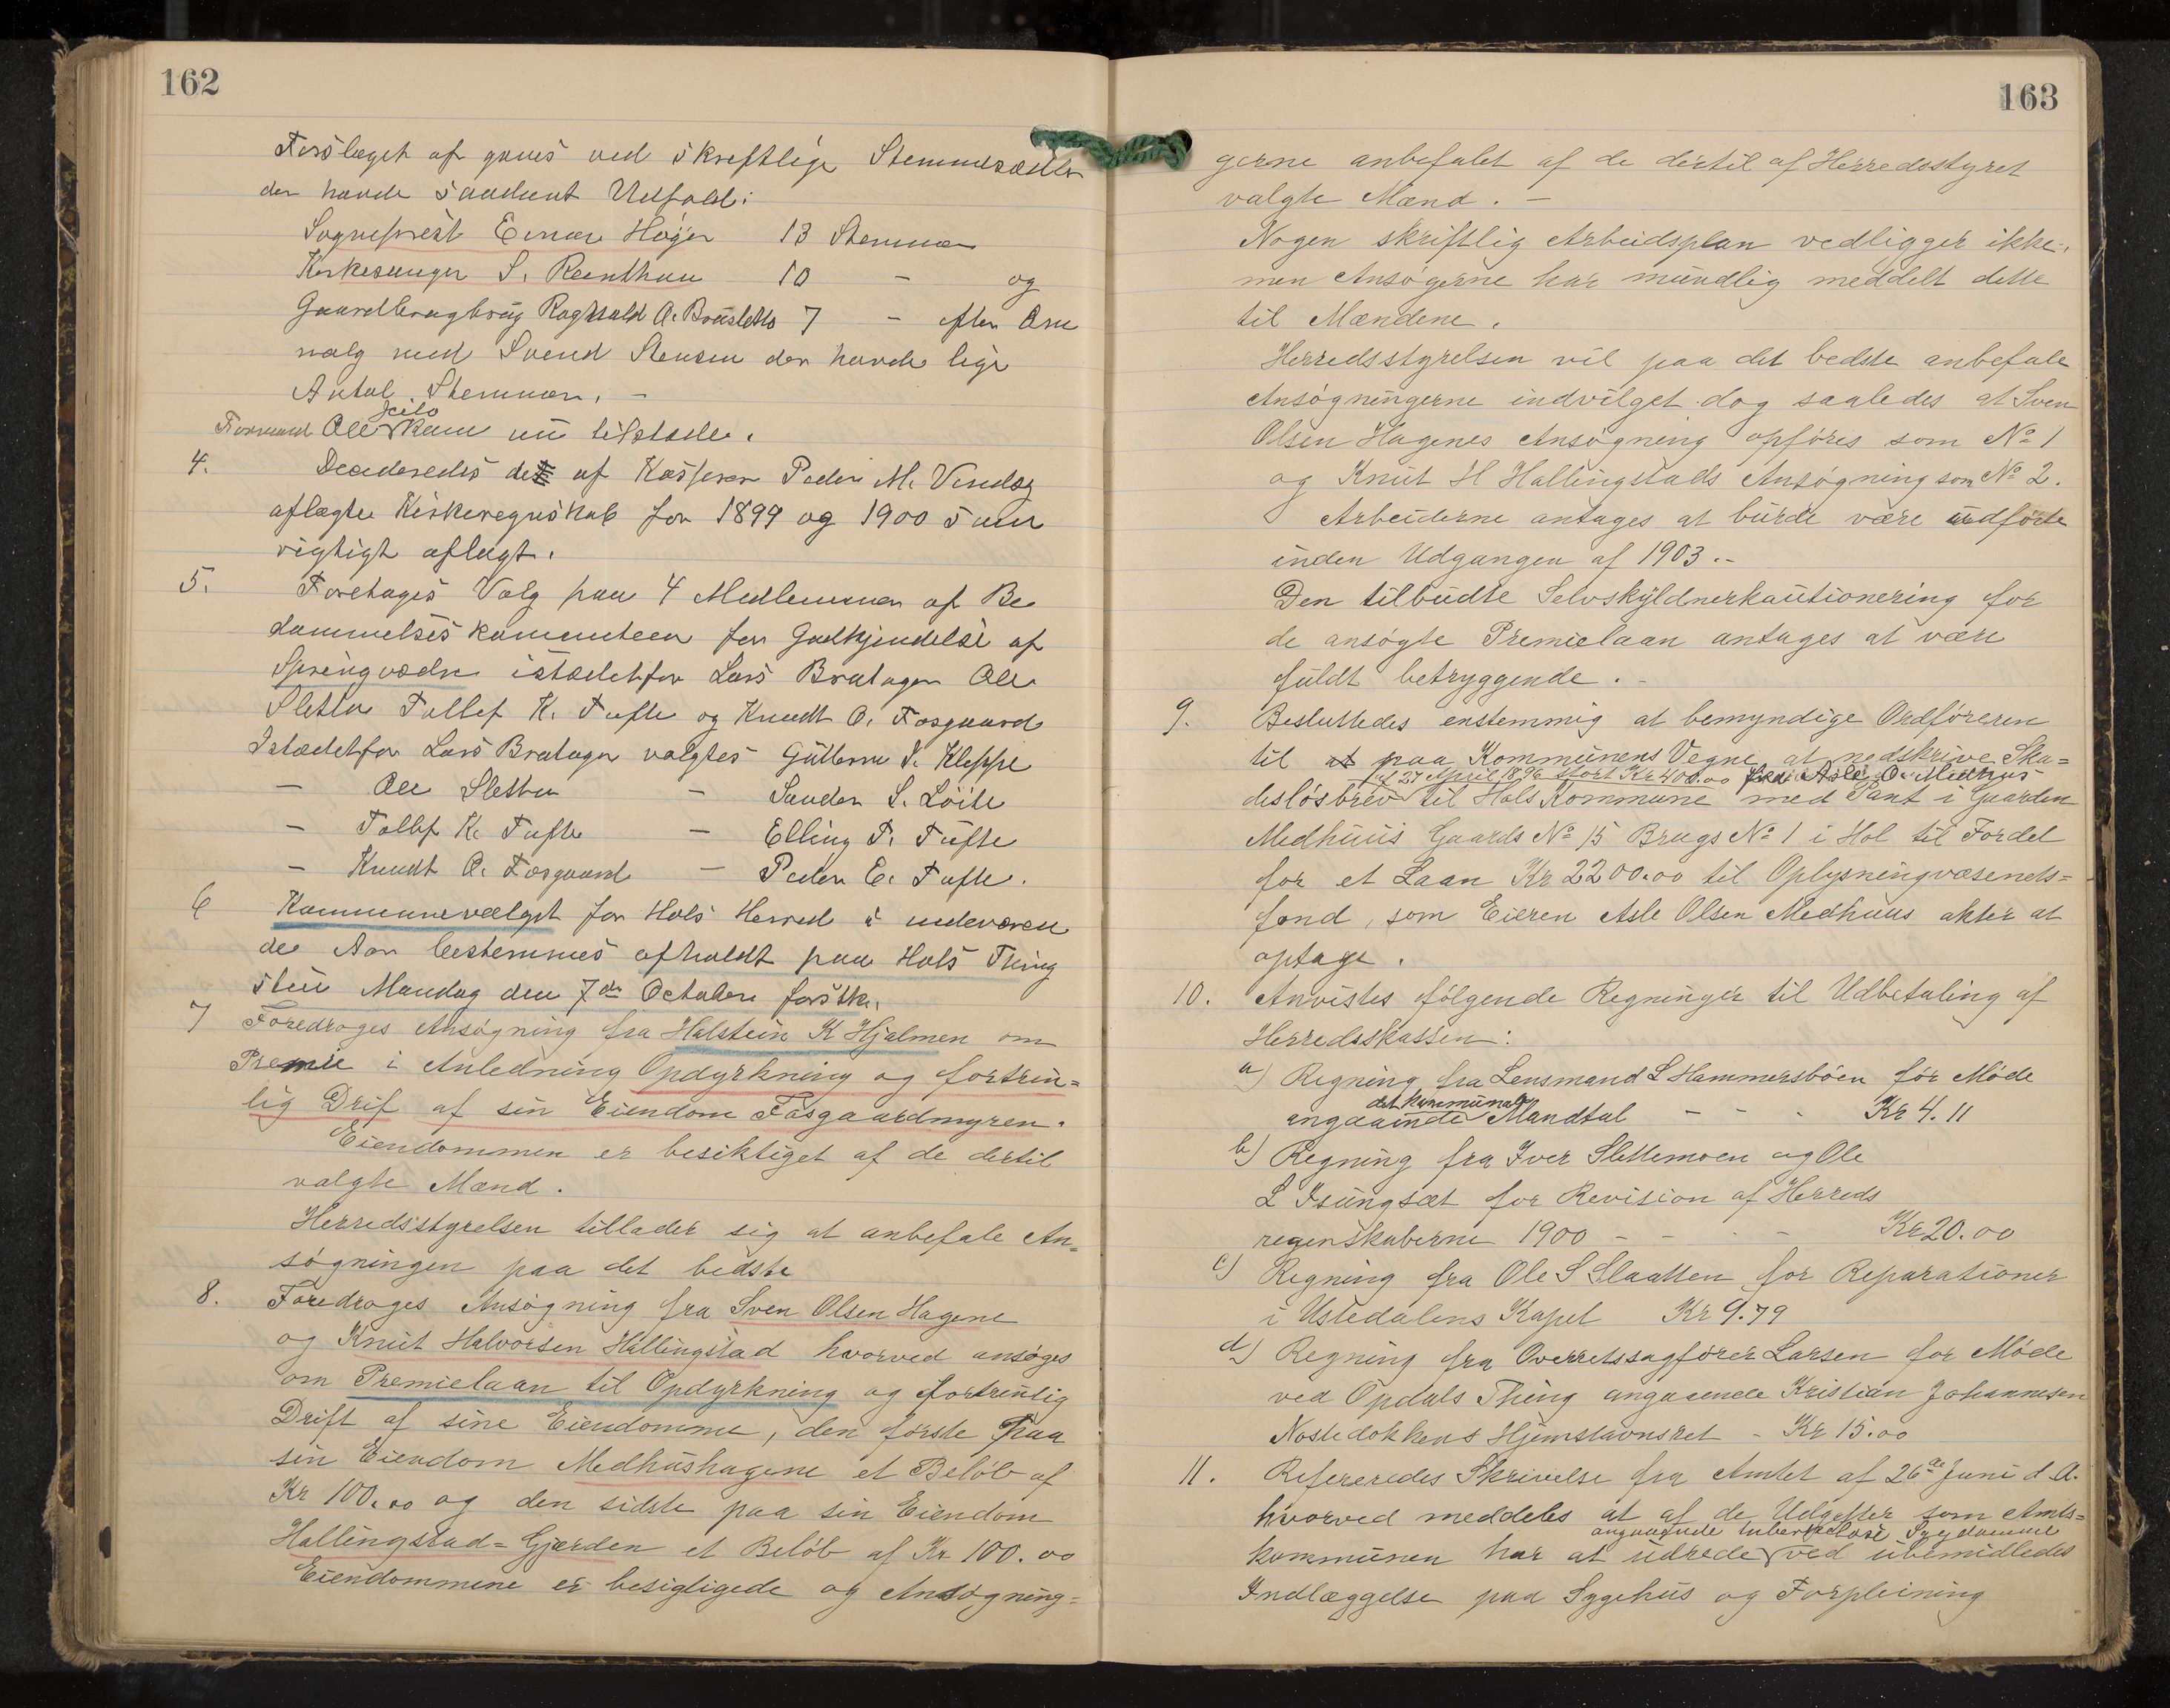 162
Forslaget af gaves ved skreftlige Stemmesedler
der havde saadant Udfald:
Sogneprest Einar Høyer 13 Stemmer
Kirkesanger S. Reinthon 10 - og
Gaardbrugbrug Ragnvald A. Brusletto 7 - efter Om
valg med Svend Stensen der havde lige
Antal Stemmer. -
Formand Ole Jeilo kom nu tilstede.
4. Decideredes de af Kasserer Peder M. Vindeg
aflagte Kirkeregnskab for 1899 og 1900 som
rigtigt aflagt.
5. Foretages Valg paa 4 Medlemmer af Be
dømmelseskommiteen for Godkjendelse af
Springvædre istedetfor Lars Bratagen Ole
Sletto Tollef K. Tufte og Knudt O. Fosgaard
Istædetfor Lars Bratagen valgtes Guttorm T. Kleppe
- Ole Sletten - Sander S. Löite
- Tollef K. Tufte - Elling T. Tufte
- Knudt O. Fosgaard - Peder E. Tufte.
6 Kommunevalget for Hols Herred i indeværen
de Aar bestemmes afholdt paa Hols Thing
stue Mandag den 7de Octobere førstk.
7 Foredroges Ansøgning fra Halstein K Hjalmen om
Premie i Anledning Opdyrkning og fortrin=
lig Drif af sin Eiendom Fosgaardmyren.
Eiendommen er besiktiget af de dertil
valgte Mænd.
Herredsstyrelsen tillader sig at anbefale An=
søgningen paa det bedste
8. Foredroges Ansøgning fra Sven Olsen Hagene
og Knut Halvorsen Hallingstad hvorved ansøges
om Premielaan til Opdyrkning og fortrinlig
Drift af sine Eiendomme, den første paa
sin Eiendom Medhushagene et Beløb af
Kr 100.00 og den sidste paa sin Eiendom
Hallingstad=Gjerden et Beløb af Kr 100.00
Eiendommene er besigtigede og Ansøgning=
163
gerne anbefalet af de dertil af Herredsstyret
valgte Mænd. -
Nogen skriftlig Arbeidsplan vedligger ikke,
men Ansøgerne har mundlig meddelt dette
til Mændene.
Herredsstyrelsen vil paa det bedste anbefale
Ansøgningerne indvilget dog saaledes at Sven
Olsen Hagenes Ansøgning opføres som No 1
og Knut H Hallingstads Ansøgning som No 2.
Arbeiderne antages at burde være udførte
inden Udgangen af 1903.-
Den tilbudte Selvskyldnerkautionering for
de ansøgte Premielaan antages at være
fuldt betryggende. -
9. Besluttedes enstemmig at bemyndige Ordføreren
til at paa Kommunens Vegne at nedskrive Ska=
af 27 April 1896 stort Kr 400.00 fra Asle O. Medhus
desløsbrev til Hols Kommune med Pant i Gaarden
Medhuus Gaards No 15 Brugs No 1 i Hol til Fordel
for et Laan Kr 2200.00 til Oplysningvæsenets=
fond, som Eieren Asle Olsen Medhuus akter at
optage.
10. Anvistes følgende Regninger til Udbetaling af
Herredskassen:
a) Regning fra Lensmand L Hammersbøen før Møde
det kommunale
angaainde Mandtal - - - Kr 4.11
b) Regning fra Iver Slettemoen og Ole
L Isungset for Revision af Herreds
regenskaberne 1900 - - - - Kr 20.00
c) Regning fra Ole S Slaatten for Reparationer
i Ustedalens Kapel Kr 9.79
d) Regning fra Overretssagfører Larsen for Møde
ved Opdals Thing angaaende Kristian Johannesen
Nostedokkens Hjemstavnsret - Kr 15.00
11. Refereredes Skrivelse fra Amtet af 26de Juni d.A.
hvorved meddeles at af de Udgifter som Amts=
angaaende tuberkelose Sygdomme
kommunen har at udrede ved ubemidledes
Indlæggelse paa Sygehus og Forpleining